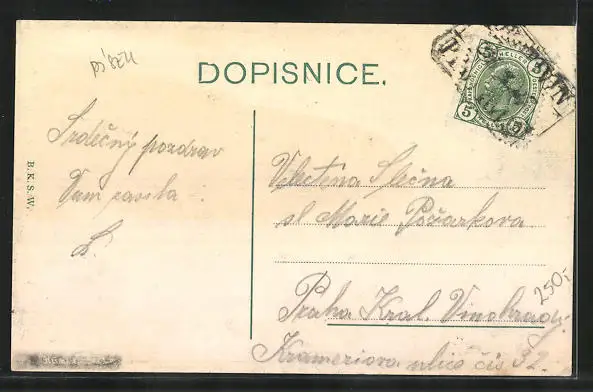 PÍSEK
DOPISNICE.
5 HELLER 5
Srdečný pozdrav
Vam zasila
L.
B. K. S. W.
Velectěna Slečna
sl Marie Požárkova
Praha Kral. Vinohrady
Krameriova ulice čís 32.
250,-